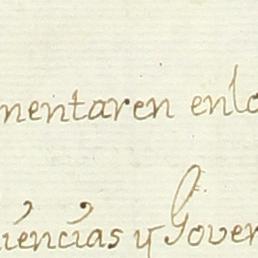 mentaren enlo
iencias y Gover